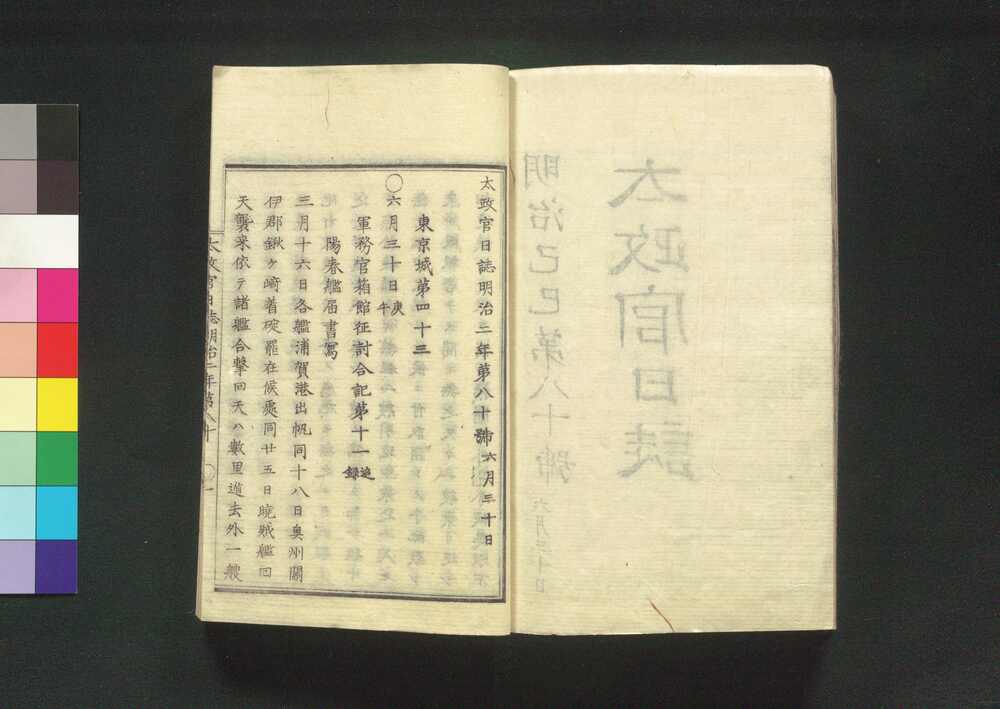 太政官日誌
明治己巳第八十號
六月三十日
太政官日誌明治二年第八十號 六月三十日
東京城第四十三
○六月三十日庚午
軍務官箱館征討合記第十一 追録
陽春艦届書寫
三月十六日各艦浦賀港出帆同十八日奥州關
伊郡鍬ヶ﨑着碇罷在候處同廿五日曉賊艦回
天襲来依テ諸艦合擊回天ハ數里遁去外一艘
太政官日誌明治二年第八十 ○一